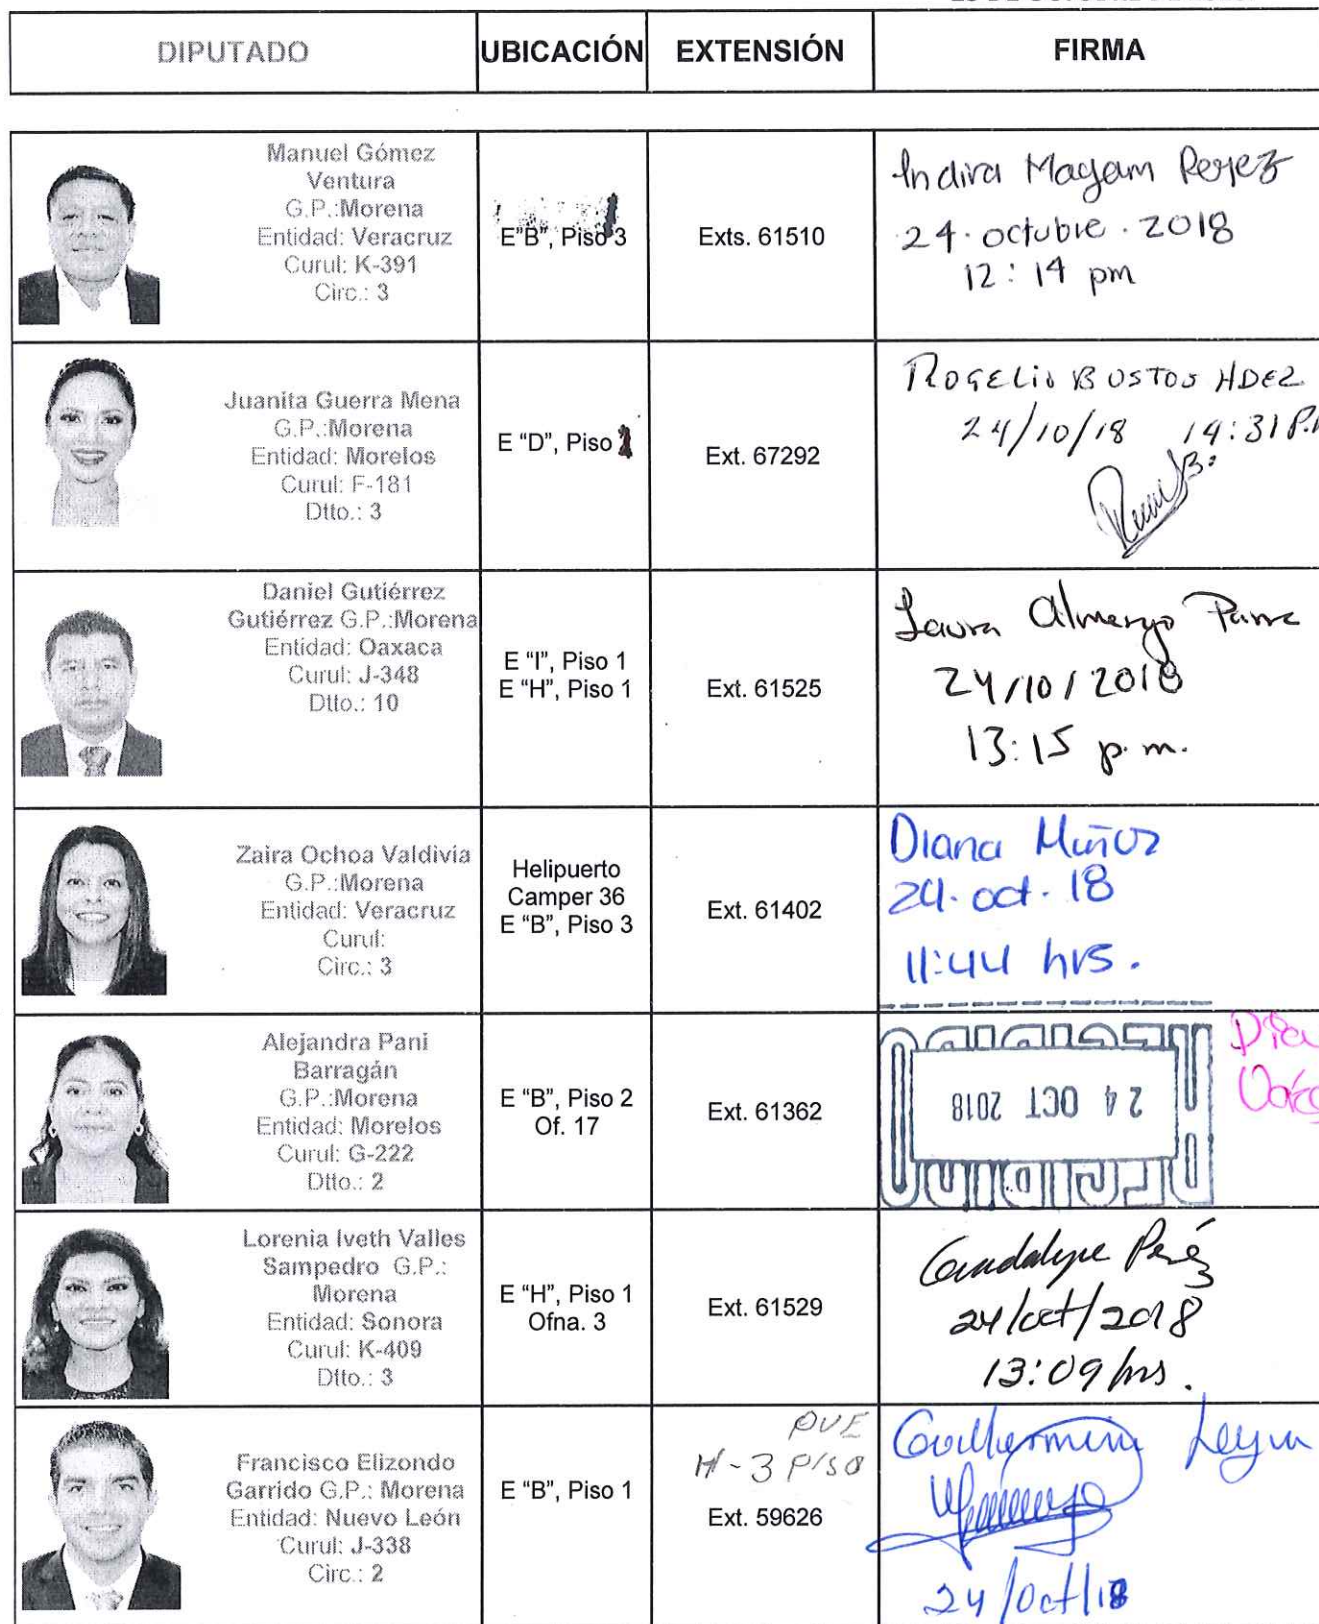 DIPUTADO UBICACIÓN EXTENSIÓN FIRMA
Manuel Gómez
Ventura
G.P.:Morena
Entidad: Veracruz
Curul: K-391
Circ.: 3
E"B", Piso 3
Exts. 61510
Indira Magam Perez
24. octubre. 2018
12:14 pm
Juanita Guerra Mena
G.P.:Morena
Entidad: Morelos
Curul: F-181
Dtto.: 3
E "D", Piso
Ext. 67292
ROGELIO BUSTOS HDEZ
24/10/18 14:31 P.
Daniel Gutiérrez
Gutiérrez G.P.:Morena
Entidad: Oaxaca
Curul: J-348
Dtto.: 10
E "I", Piso 1
E "H", Piso 1
Ext. 61525
Laura
24/10/2018
13:15 p.m.
Zaira Ochoa Valdivia
G.P.:Morena
Entidad: Veracruz
Curul:
Circ.: 3
Helipuerto
Camper 36
E "B", Piso 3
Ext. 61402
Diana Muñoz
24. oct. 18
11:44 hrs.
Alejandra Pani
Barragán
G.P.:Morena
Entidad: Morelos
Curul: G-222
Dtto.: 2
E "B", Piso 2
Of. 17
Ext. 61362
24 OCT 2018
Lorenia Iveth Valles
Sampedro G.P.:
Morena
Entidad: Sonora
Curul: K-409
Dtto.: 3
E "H", Piso 1
Ofna. 3
Ext. 61529
Guadalupe Peréz
24/oct/2018
13:09 hrs.
Francisco Elizondo
Garrido G.P.: Morena
Entidad: Nuevo León
Curul: J-338
Circ.: 2
E "B", Piso 1
H-3 PISO
Ext. 59626
Guillermina Leyva
24/Oct/18